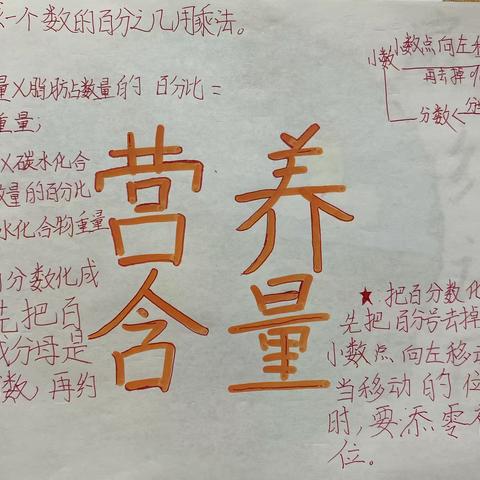 一个数的百分之几用乘法。
量×脂肪占数量的 百分比=
重量;
×碳水化合
数量的百分比
水化合物重量
分数化成
先把百
成分母是
数,再约
营养
含量
小数 小数点向左移
再去掉%
分数
★:把百分数化
先把百分号去掉
小数点向左移动
当移动的位
时,要添零补
位。